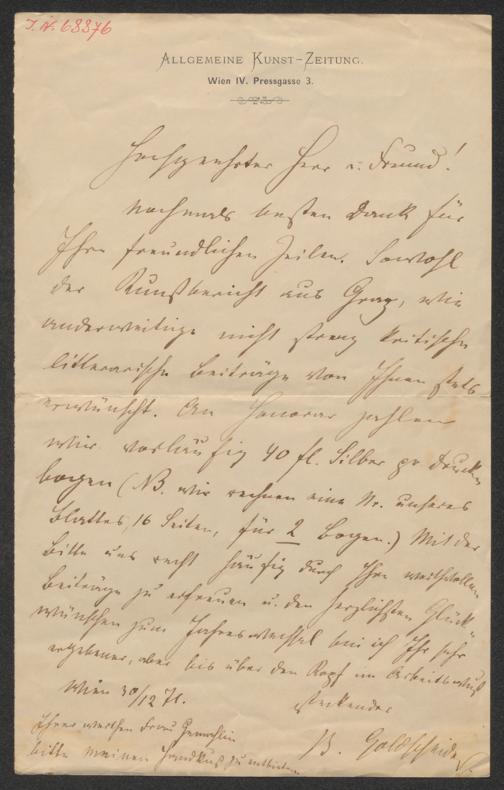 I. N. 68876
ALLGEMEINE KUNST-ZEITUNG.
Wien IV. Pressgasse 3.
Hochgeehrter Herr u. Freund!
Nochmals besten Dank für
Ihre freundlichen Zeilen. Sowohl
der Kunstbericht aus Graz, wie
anderweitige nicht streng kritische
litterarische Beiträge von Ihnen stets
erwünscht. An Honorar zahlen
wir vorläufig 40 fl. Silber pr Druck-
bogen (NB. wir rechnen eine Nr. unseres
Blattes, 16 Seiten, für 2 Bogen.) Mit der
Bitte uns recht häufig durch Ihre werthvollen
Beiträge zu erfreuen u. den herzlichsten Glück-
wünschen zum Jahreswechsel bin ich Ihr sehr
ergebener, aber bis über den Kopf im Arbeitswust
steckender
Wien 30/12 71.
B. Goldscheider.
Ihrer werthen Frau Gemahlin
bitte meinen Handkuß zu